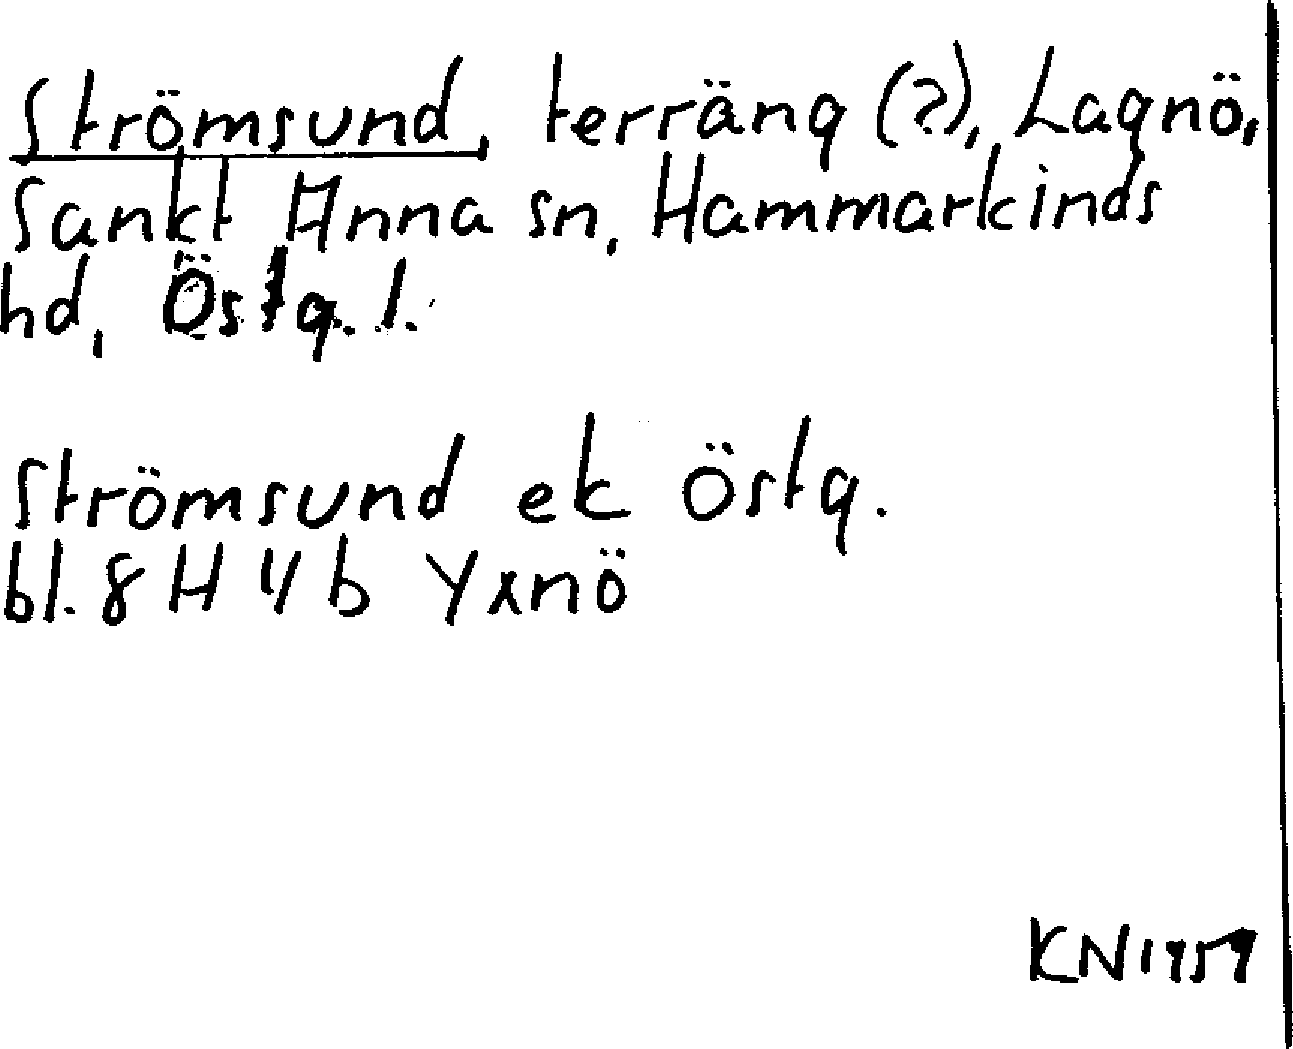 Strömsund, terräng (?), Lagnö,
Sankt Anna sn, Hammarkinds
hd, Östg. l.
Strömsund ek Östg.
bl. 8 H 4 b Yxnö
KN 1959